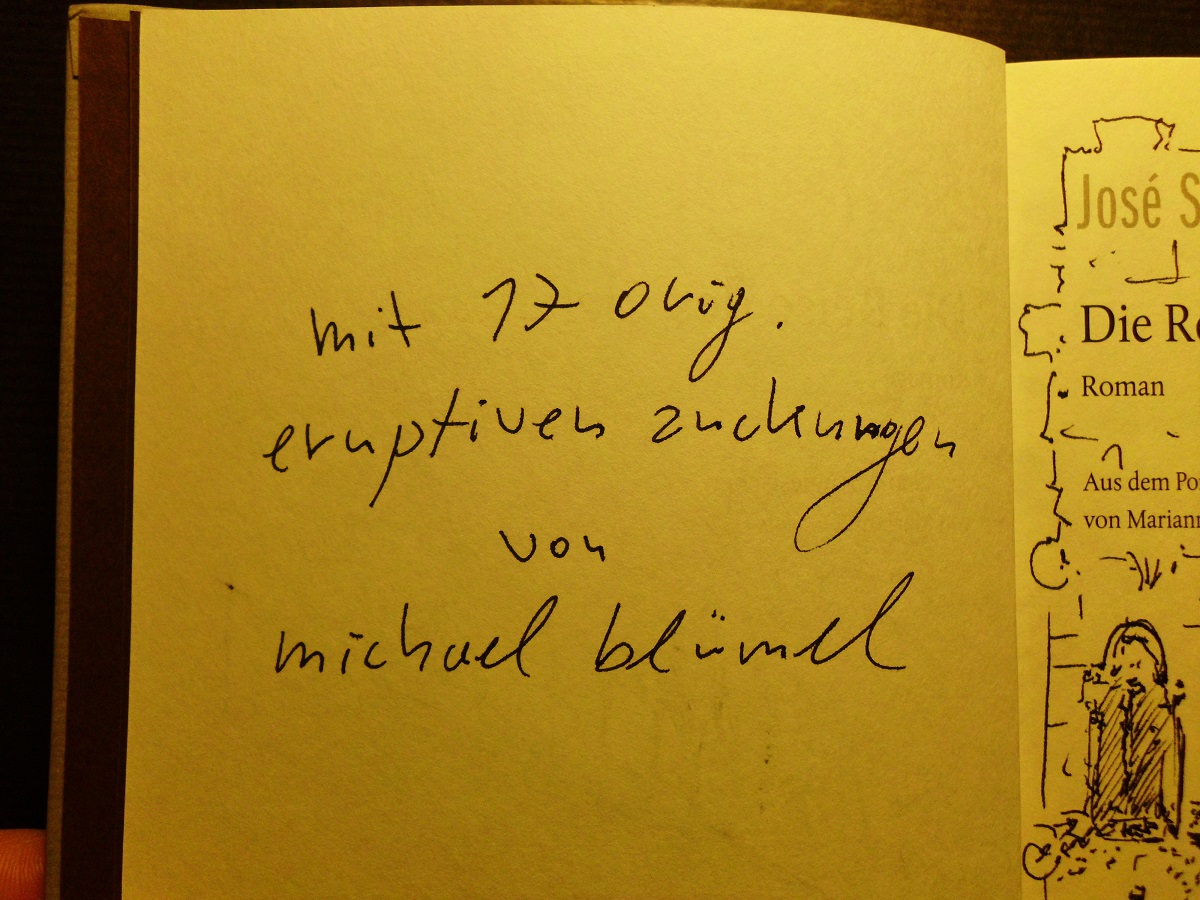 mit 17 orig.
eruptiven zuckungen
von
michael blümel
José S
Die Re
Roman
Aus dem Por
von Mariann